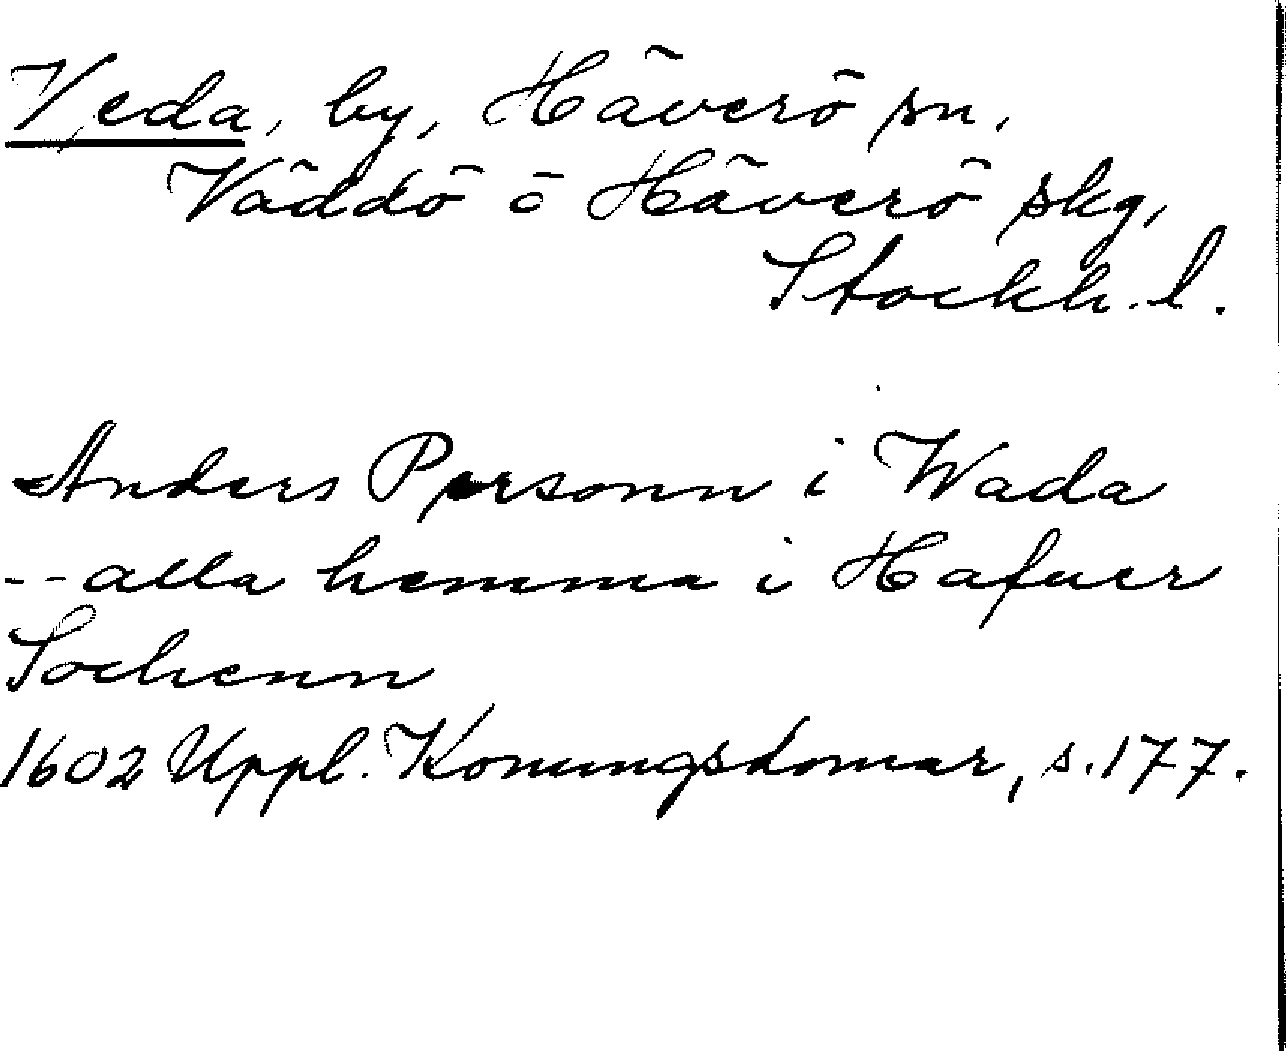 Veda, by, Häverö sn,
Väddö o Häverö skg,
Stockh. l.
Anders Personn i Wada
-- alla hemma i Hafuer
Sochenn
1602 Uppl. Konungsdomar, s. 177.